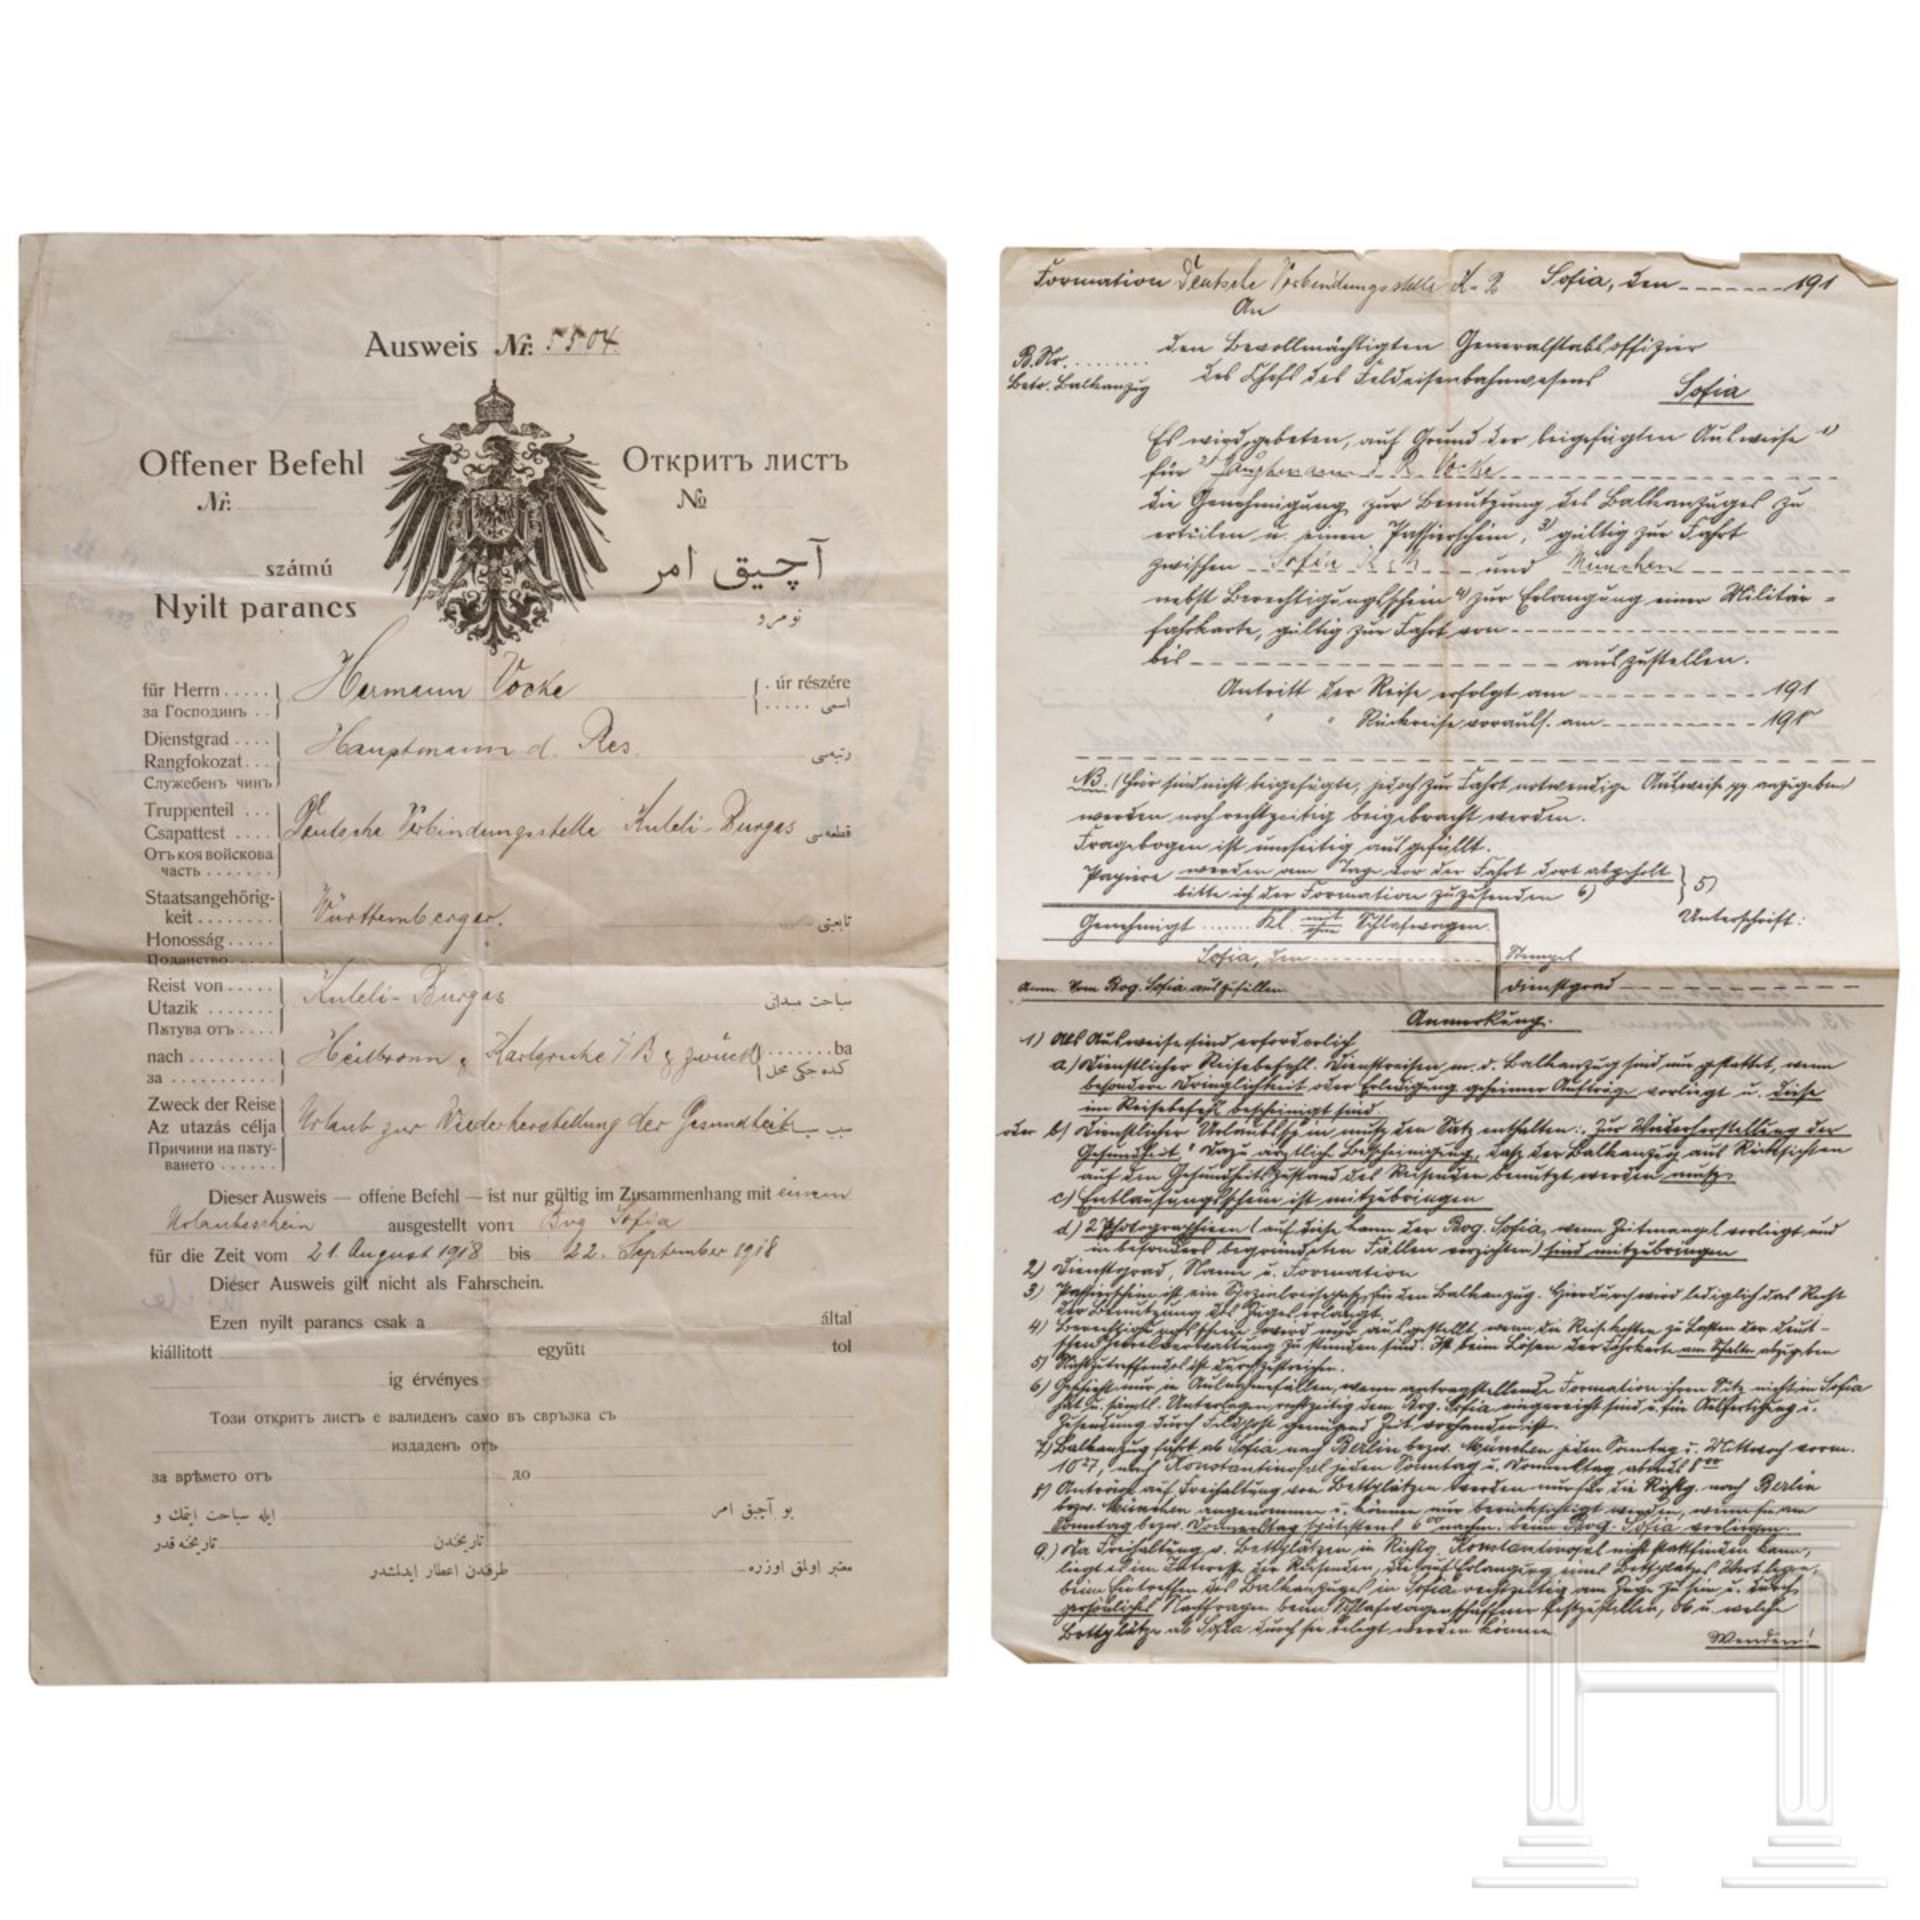 Ausweis Nr. 5504
Offener Befehl
Nr.
Открить листъ
№
számú
Nyilt parancs
آچيق امر
نومرو
für Herrn ..... Hermann Vocke . úr részére
за Господинъ .. اسمى .....
Dienstgrad .... Hauptmann d. Res.
Rangfokozat... رتبه‌سى
Служебенъ чинъ
Truppenteil ...
Csapattest .... Deutsche Verbindungsstelle Kuleli-Burgas قطعه‌سى
Отъ коя войскова
часть .......
Staatsangehörig-
keit ........ Württemberger. تابعيتى
Honosság .....
Поданство
Reist von ..... Kuleli-Burgas
Utazik ....... سياحت مبدائى
Пѫтува отъ ....
nach ......... Heilbronn & Karlsruhe i/B & zurück .......ba
за ...........
Zweck der Reise
Az utazás célja Urlaub zur Wiederherstellung der Gesundheit
Причини на пѫту-
ването ......
Dieser Ausweis — offene Befehl — ist nur gültig im Zusammenhang mit einem
Urlaubsschein ausgestellt vom Bvg Sofia
für die Zeit vom 21. August 1918 bis 22. September 1918
Dieser Ausweis gilt nicht als Fahrschein.
Ezen nyilt parancs csak a által
kiállitott együtt tol
ig érvényes
Този открить листъ е валиденъ само въ свръзка съ
издаденъ отъ
за врѣмето отъ до
بو آچيق امر ايله سياحت ايتمك و
تاريخندن تاريخنه قدر
معتبر اولمق اوزره ... طرفندن اعطار ايدلمشدر
Formation Deutsche Verbindungsstelle K-B Sofia, den 191
An
den Bevollmächtigten Generalstabsoffizier
B.Nr. ........
des Chefs des Feldeisenbahnwesens
Betr. Balkanzug
Sofia
Es wird gebeten, auf Grund der beigefügten Ausweise 1)
für 2) Hauptmann d. R. Vocke
die Genehmigung zur Benutzung des Balkanzuges zu
erteilen u. einen Passierschein, 3) gültig zur Fahrt
zwischen Sofia und München
nebst Berechtigungsschein 4) zur Erlangung einer Militär-
fahrkarte, gültig zur Fahrt von
bis auszustellen.
Antritt der Reise erfolgt am 191
" " Rückreise vorauss. am 191
NB. (Hier sind nicht beigefügte, jedoch zur Fahrt notwendige Ausweise pp anzugeben)
werden noch rechtzeitig beigebracht werden.
Fragebogen ist umseitig ausgefüllt.
Papiere werden am Tage vor der Fahrt dort abgeholt
bitte ich der Formation zuzusenden 6) 5)
Unterschrift:
Genehmigt ....... Kl. mit ohne Schlafwagen.
Sofia, den
Stempel
Anm. Vom Bvg. Sofia auszufüllen.
Dienstgrad
Anmerkung.
1) Als Ausweise sind erforderlich
a) Dienstlicher Reisebefehl. Dienstreisen m. d. Balkanzug sind nur gestattet, wenn
besondere Dringlichkeit oder Erledigung geheimer Aufträge vorliegt u. diese
im Reisebefehl bescheinigt sind.
oder b) Dienstlicher Urlaubsschein muss den Satz enthalten: "Zur Wiederherstellung der
Gesundheit." Dazu ärztliche Bescheinigung, dass der Balkanzug aus Rücksichten
auf den Gesundheitszustand des Reisenden benutzt werden muss.
c) Entlausungsschein ist mitzubringen
d) 2 Photographieen (auf diese kann der Bvg. Sofia, wenn Zeitmangel vorliegt und
in besonders begründeten Fällen verzichten) sind mitzubringen
2) Dienstgrad, Name u. Formation
3) Passierschein ist ein Spezialreisepass für den Balkanzug. Hierdurch wird lediglich das Recht
der Benutzung des Zuges erlangt.
4) Berechtigungsschein wird nur ausgestellt, wenn die Reisekosten zu Lasten der deut-
schen Heeresverwaltung zu stunden sind. Ist beim Lösen der Fahrkarte am Schalter abzugeben
5) Nichtzutreffendes ist durchzustreichen.
6) Geschieht nur in Ausnahmefällen, wenn antragstellende Formation ihren Sitz nicht in Sofia
hat u. sämtl. Unterlagen rechtzeitig dem Bvg. Sofia eingereicht sind u. für Ausfertigung u.
Zusendung durch Feldpost genügend Zeit vorhanden ist.
7) Balkanzug fährt ab Sofia nach Berlin bezw. München jeden Sonntag u. Mittwoch vorm.
10 27, nach Konstantinopel jeden Sonntag u. Donnerstag abends 8 00
8) Anträge auf Freihaltung von Bettplätzen werden nur für die Richtg. nach Berlin
bezw. München angenommen u. können nur berücksichtigt werden, wenn sie am
Sonntag bezw. Donnerstag spätestens 6 00 nachm. beim Bvg. Sofia vorliegen.
9.) Da Freihaltung v. Bettplätzen in Richtg. Konstantinopel nicht stattfinden kann,
liegt es im Interesse der Reisenden, die auf Erlangung eines Bettplatzes Wert legen,
beim Eintreffen des Balkanzuges in Sofia rechtzeitig am Zuge zu sein u. durch
persönliches Nachfragen beim Schlafwagenschaffner festzustellen, ob u. welche
Bettplätze ab Sofia durch sie belegt werden können.
Wenden!